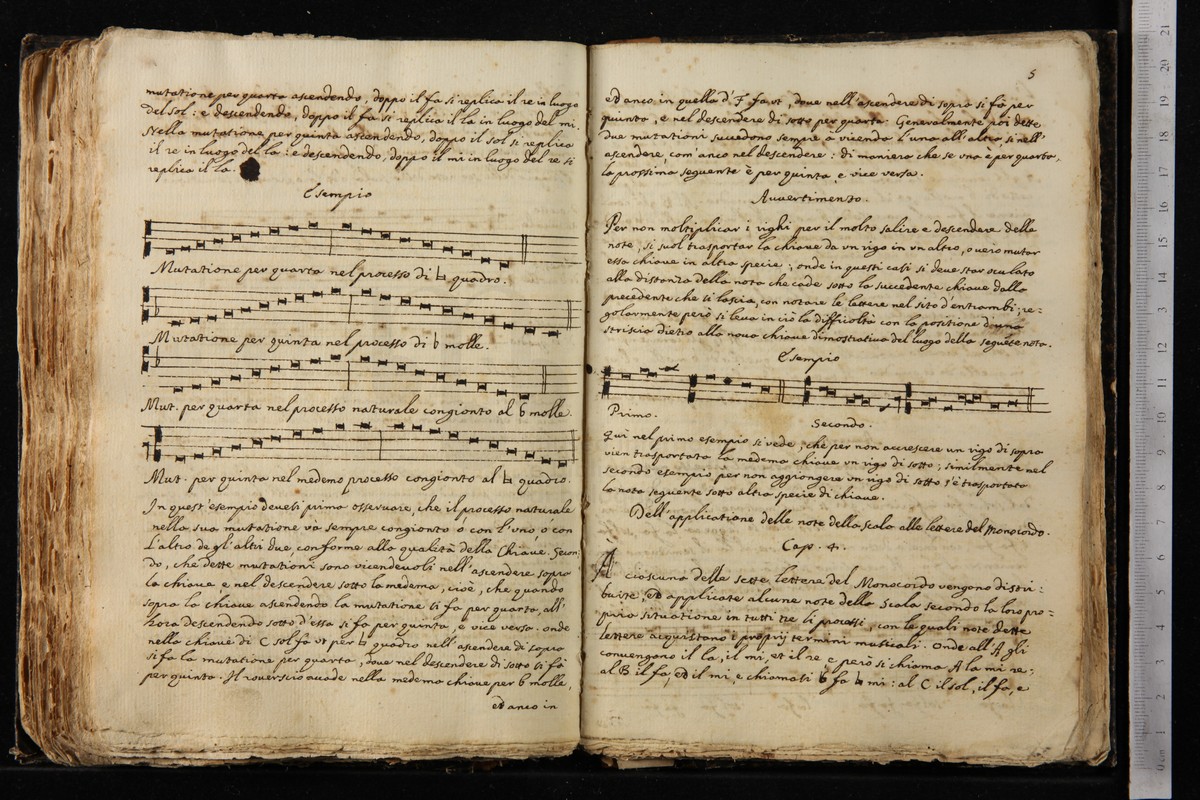 mutatione per quarta ascendendo, doppo il fa si replica il re in luogo
del sol: e descendendo, doppo il fa si replica il la in luogo del mi.
Nella mutatione per quinta ascendendo, doppo il sol si replica
il re in luogo del la: e descendendo, doppo il mi in luogo del re si
replica il la.
Esempio
Mutatione per quarta nel processo di ♮ quadro.
Mutatione per quinta nel processo di b molle.
Mut. per quarta nel processo naturale congionto al b molle.
Mut. per quinta nel medemo processo congionto al ♮ quadro.
In quest'esempio devesi prima osservare, che il processo naturale
nella sua mutatione và sempre congionto ò con l'uno, ò con
l'altro degl'altri due, conforme alla qualità della Chiave. Secon
do, che dette mutationi sono vicendevoli nell'ascendere sopra
la chiave, e nel descendere sotto la medema, cioè, che quando
sopra la chiave ascendendo la mutatione si fa per quarta, all'
hora descendendo sotto d'essa si fa per quinta, e vice versa. onde
nella chiave di C sol fa ut per ♮ quadro nell'ascendere di sopra
si fa la mutatione per quarta, dove nel descendere di sotto si fà
per quinta. Il roverscio accade nella medema chiave per b molle,
ed anco in
5
ed anco in quella d'F fa ut, dove nell'ascendere di sopra si fà per
quinta, e nel descendere di sotto per quarta. Generalmente poi dette
due mutationi succedono sempre à vicenda l'una all'altra, sì nell'
ascendere, com'anco nel descendere: di maniera che se una è per quarta,
la prossima seguente è per quinta, e vice versa.
Avvertimento.
Per non moltiplicar i righi per il molto salire e descendere delle
note, si suol trasportar la chiave da un rigo in un altro, overo mutar
essa chiave in altra specie; onde in questi casi si deve star oculato
alla distanza della nota che cade sotto la succedente chiave dalla
precedente che si lascia, con notare le lettere nel sito d'entrambi; re-
golarmente però si leva in ciò la difficoltà con la positione d'una
striscia dietro alla nova chiave dimostrativa del luogo della seguete nota.
Esempio
Primo.
Secondo.
Qui nel primo esempio si vede, che per non accrescere un rigo di sopra
vien trasportata la medema chiave un rigo di sotto; similmente nel
secondo esempio per non aggiongere un rigo di sotto s'è trasportata
la nota seguente sotto altra specie di chiave.
Dell'applicatione delle note della scala alle lettere del Monocordo.
Cap. 4.
A ciascuna delle sette lettere del Monocordo vengono distri:
buite, ed applicate alcune note della Scala secondo la loro pro-
pria situatione in tutti tre li processi, con le quali note dette
lettere acquistano i proprij termini musicali. Onde all'A gli
convengono il la, il mi, et il re e però si chiama A la mi re:
al B il fa, ed il mi, e chiamasi b fa ♮ mi: al C il sol, il fa, e